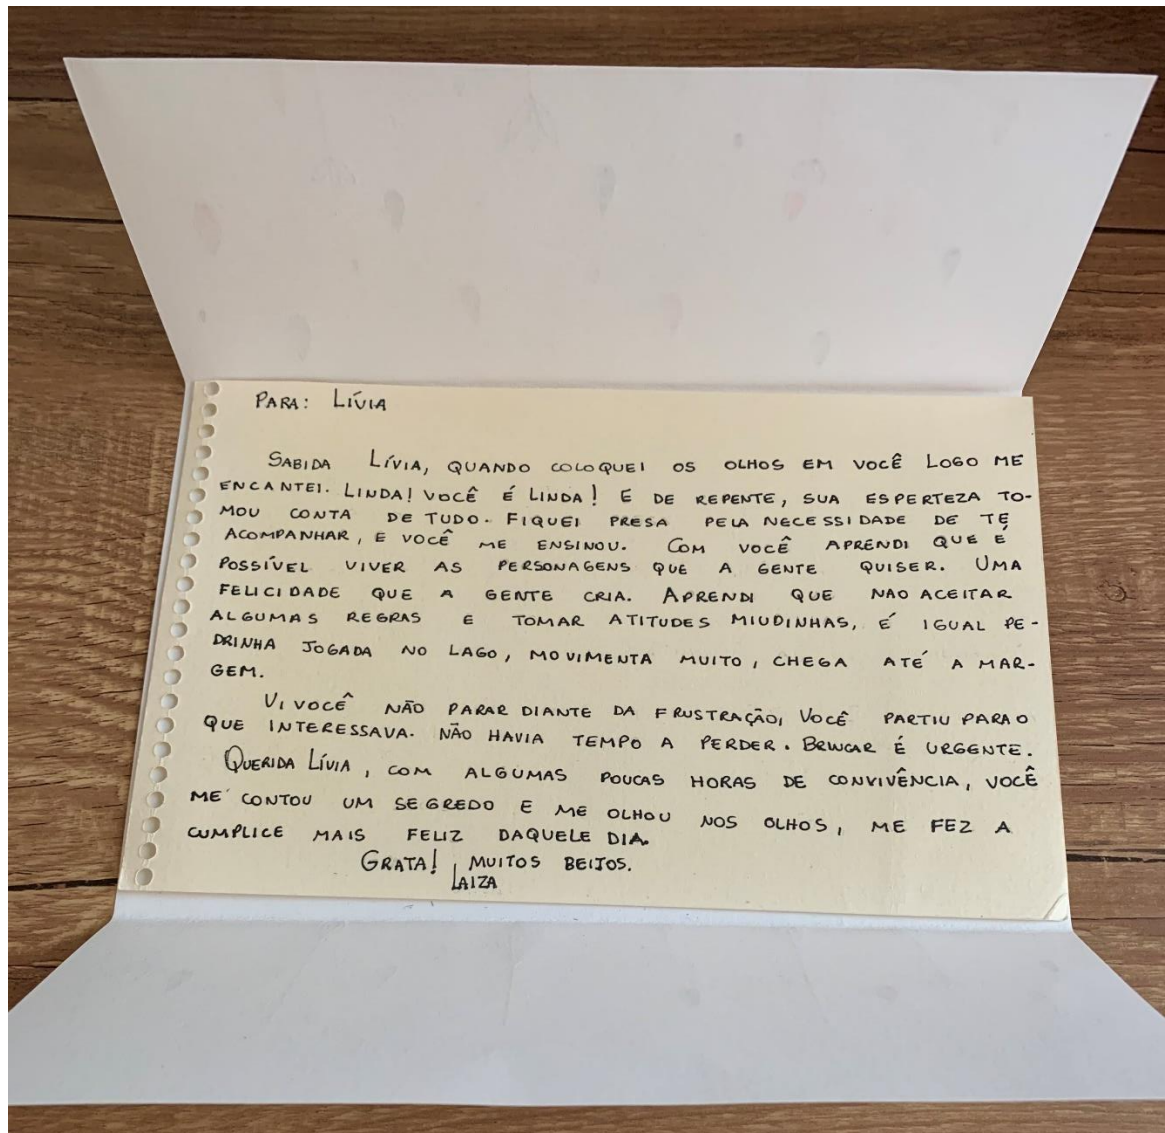 PARA: LÍVIA
SABIDA LÍVIA, QUANDO COLOQUEI OS OLHOS EM VOCÊ LOGO ME
ENCANTEI. LINDA! VOCÊ É LINDA! E DE REPENTE, SUA ESPERTEZA TO-
MOU CONTA DE TUDO. FIQUEI PRESA PELA NECESSIDADE DE TE
ACOMPANHAR, E VOCÊ ME ENSINOU. COM VOCÊ APRENDI QUE É
POSSÍVEL VIVER AS PERSONAGENS QUE A GENTE QUISER. UMA
FELICIDADE QUE A GENTE CRIA. APRENDI QUE NAO ACEITAR
ALGUMAS REGRAS E TOMAR ATITUDES MIUDINHAS, É IGUAL PE-
DRINHA JOGADA NO LAGO, MOVIMENTA MUITO, CHEGA ATÉ A MAR-
GEM.
VI VOCÊ NÃO PARAR DIANTE DA FRUSTRAÇÃO, VOCÊ PARTIU PARA O
QUE INTERESSAVA. NÃO HAVIA TEMPO A PERDER. BRINCAR É URGENTE.
QUERIDA LÍVIA, COM ALGUMAS POUCAS HORAS DE CONVIVÊNCIA, VOCÊ
ME CONTOU UM SEGREDO E ME OLHOU NOS OLHOS, ME FEZ A
CUMPLICE MAIS FELIZ DAQUELE DIA.
GRATA! MUITOS BEIJOS.
LAIZA